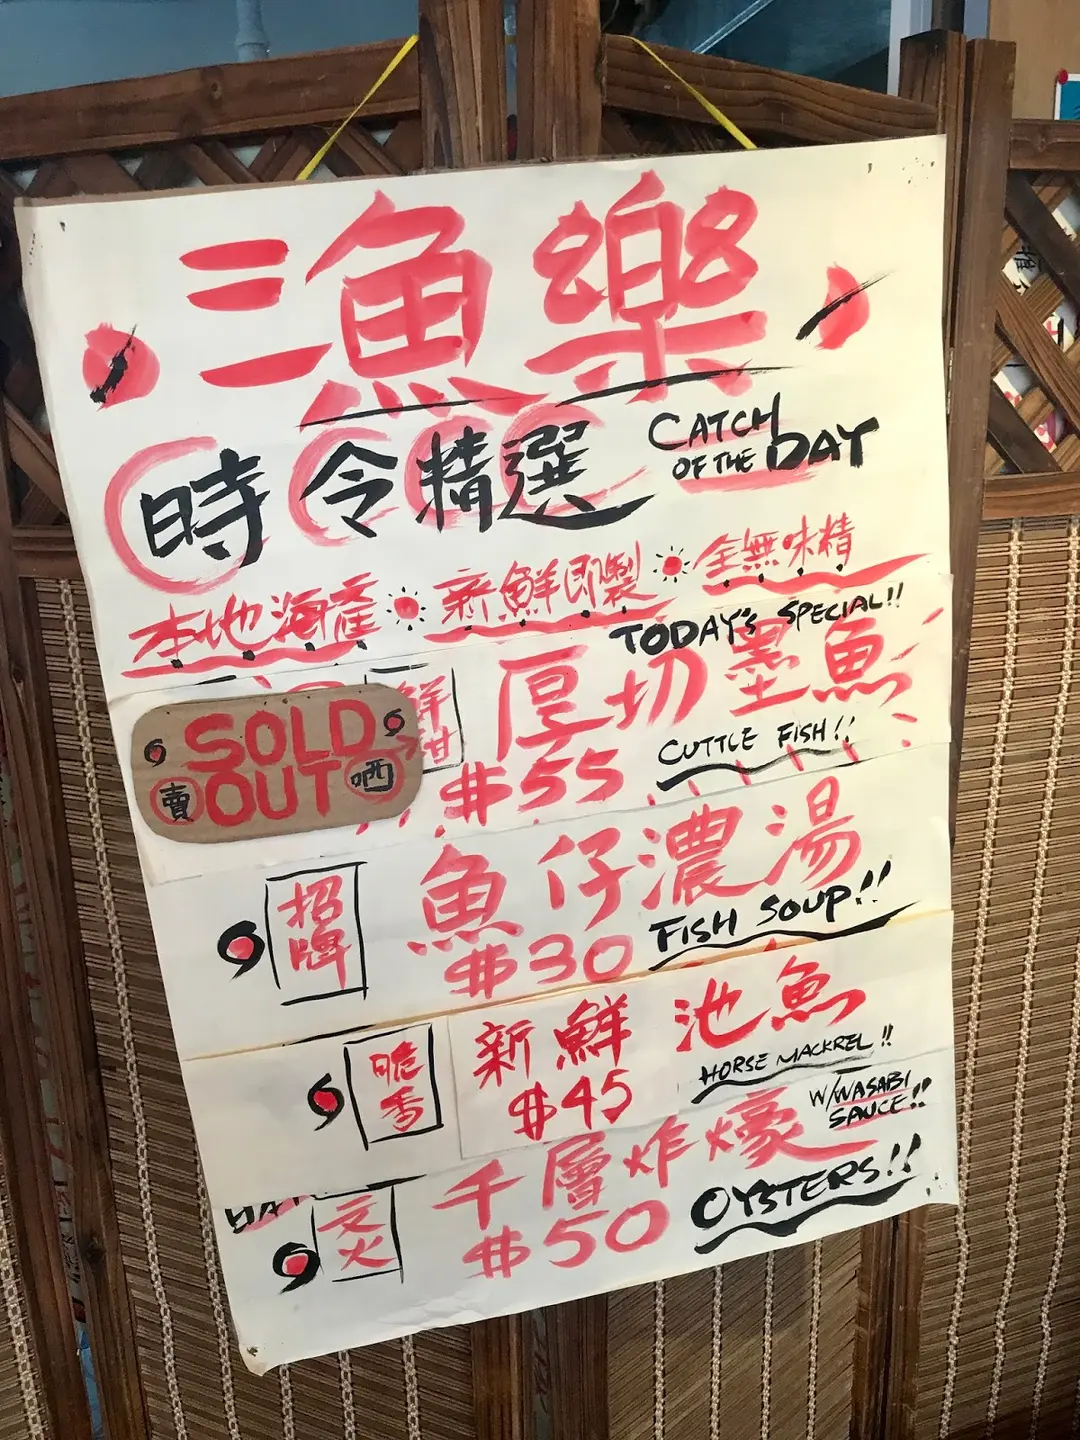 三魚樂
時令精選 CATCH OF THE DAY
本地海產 新鮮即製 全無味精
TODAY'S SPECIAL!!
SOLD OUT
賣 哂
鮮甘 厚切墨魚
$55 CUTTLE FISH!!
招牌 魚仔濃湯
$30 FISH SOUP!!
脆香 新鮮池魚
$45 HORSE MACKREL!!
W/WASABI SAUCE!!
文火 千層炸蠔
$50 OYSTERS!!